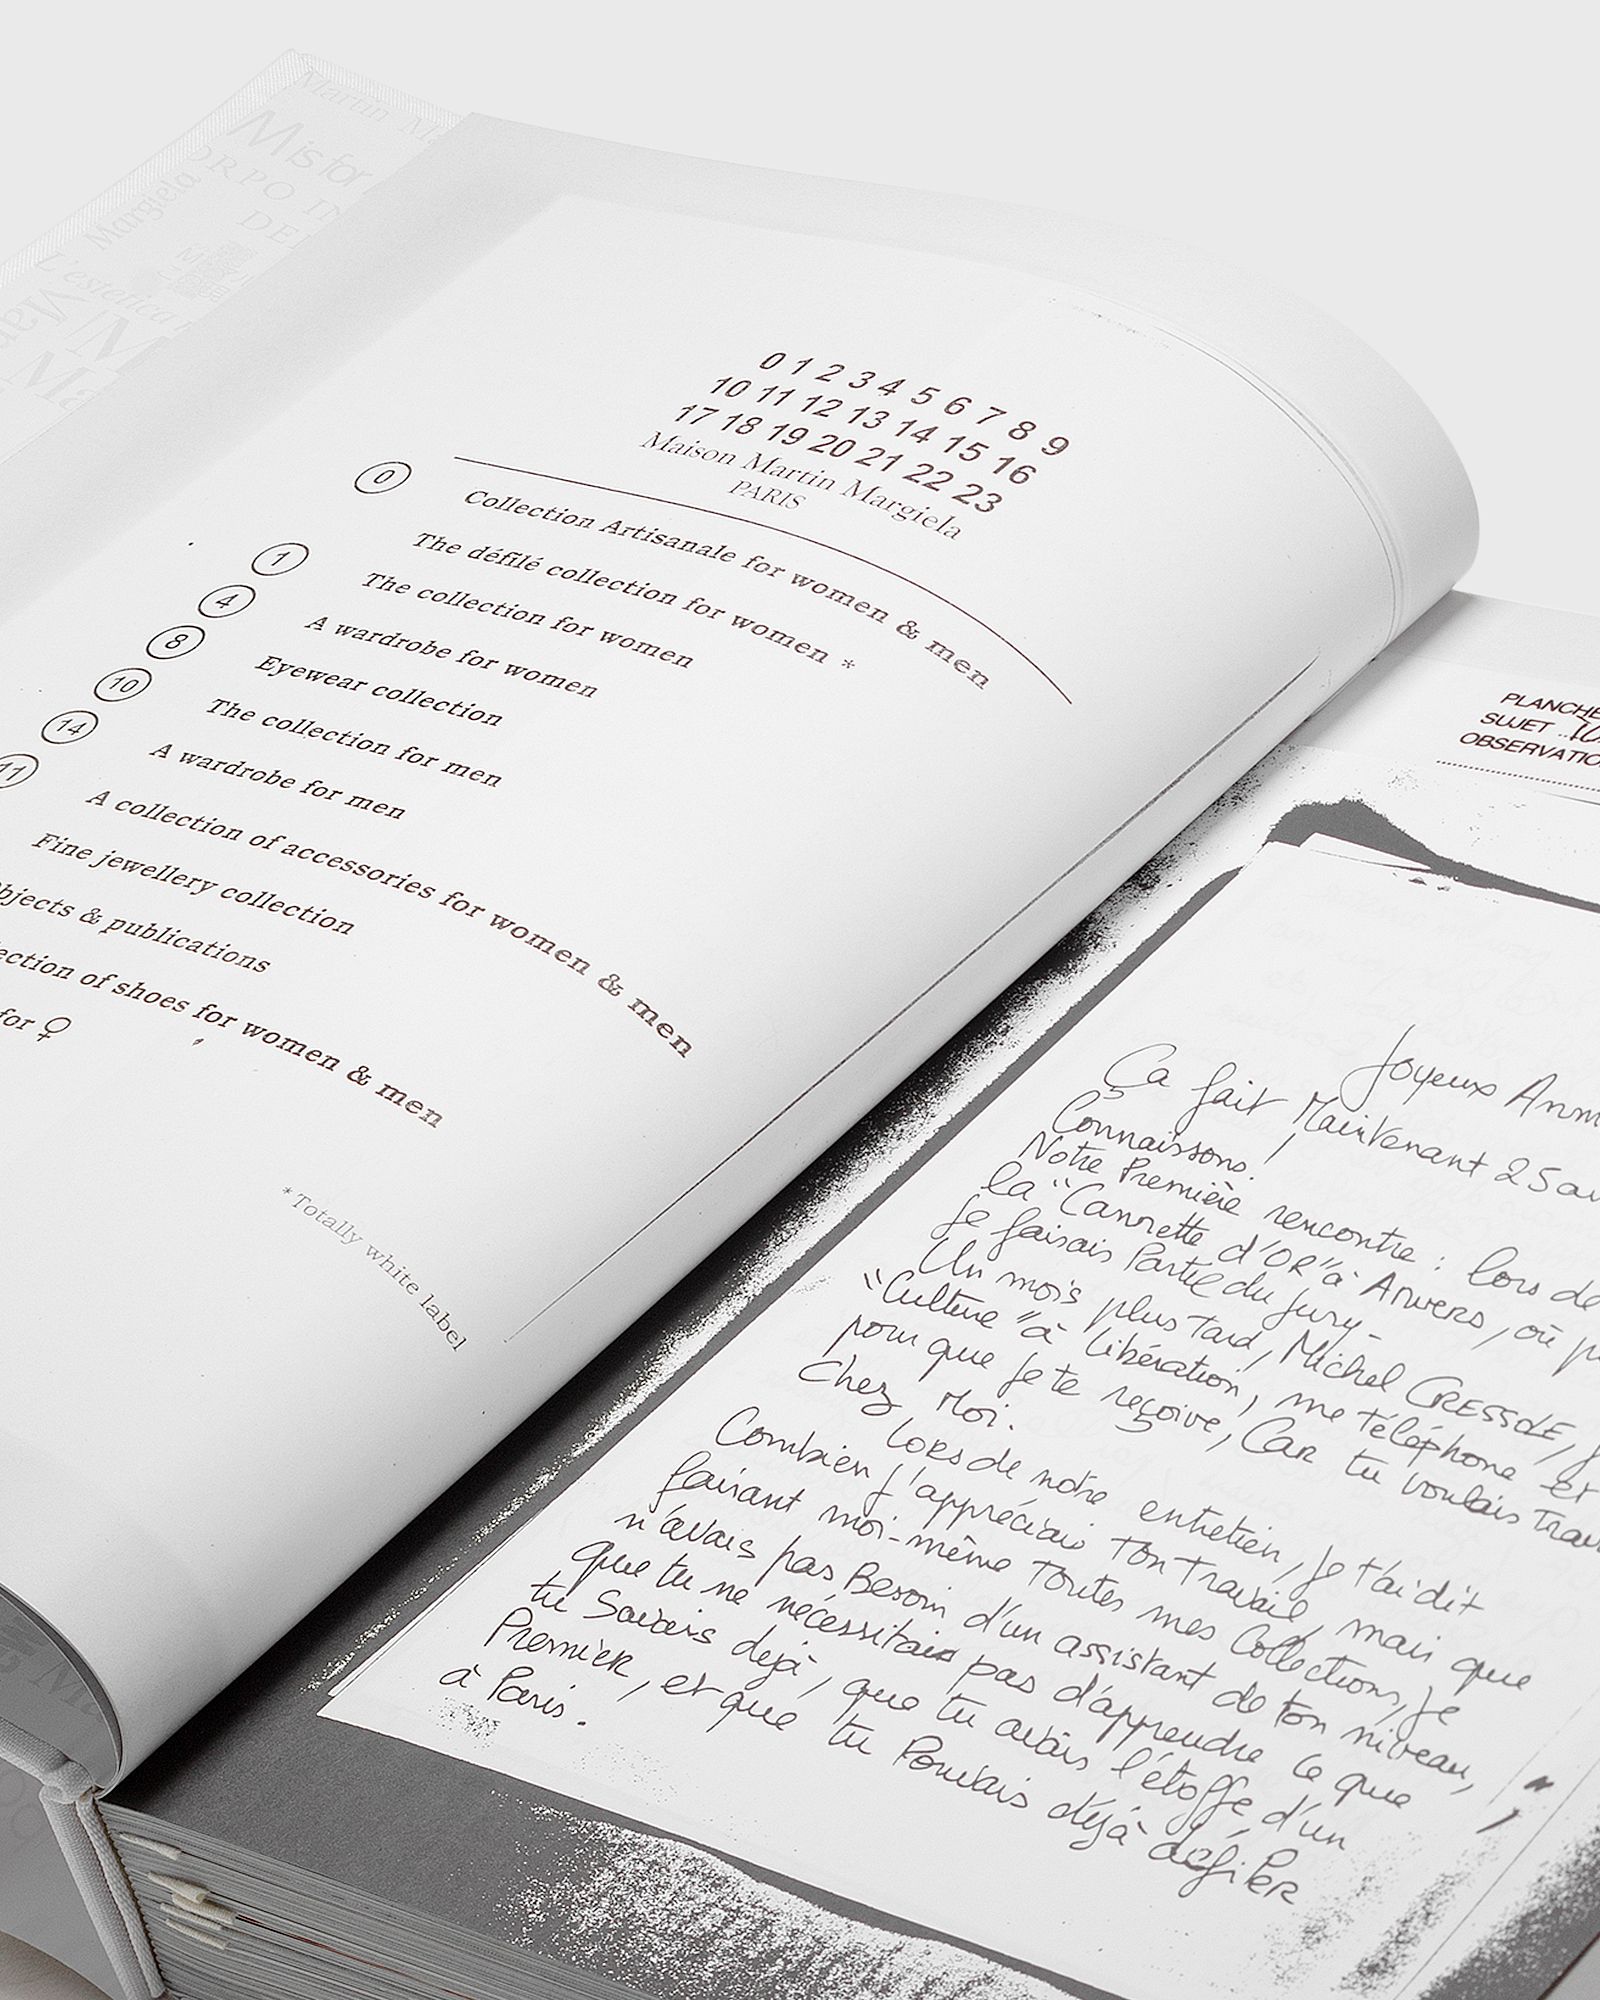 Martin
Mis for
ORPO
DE
Margiela
L'estatica
Ma
0 1 2 3 4 5 6 7 8 9
10 11 12 13 14 15 16
17 18 19 20 21 22 23
Maison Martin Margiela
PARIS
0 Collection Artisanale for women & men
The défilé collection for women *
1 The collection for women
4 A wardrobe for women
8 Eyewear collection
10 The collection for men
14 A wardrobe for men
11 A collection of accessories for women & men
Fine jewellery collection
objects & publications
of shoes for women & men
for ♀
* Totally white label
PLANCHE
SUJET
OBSERVATIO
Joyeux
Ça fait Maintenant 25
Connaissons !
Notre Première rencontre : lors de
la "Cannette d'OR" à Anvers, où
je faisais Partie du jury-
Un mois plus tard, Michel CRESSOLE,
"Culture" à Libération, me téléphone et
pour que je te reçoive, Car tu voulais
Chez Moi.
Lors de notre entretien, je t'ai dit
Combien j'appréciais ton Travail, mais que
faisant moi-même Toutes mes Collections, je
n'avais pas Besoin d'un assistant de ton niveau,
que tu ne nécessitais pas d'apprendre ce que
tu Savais dejà, que tu avais l'étoffe, d'un
Premier, et que tu Pouvais déjà défiler
à Paris.